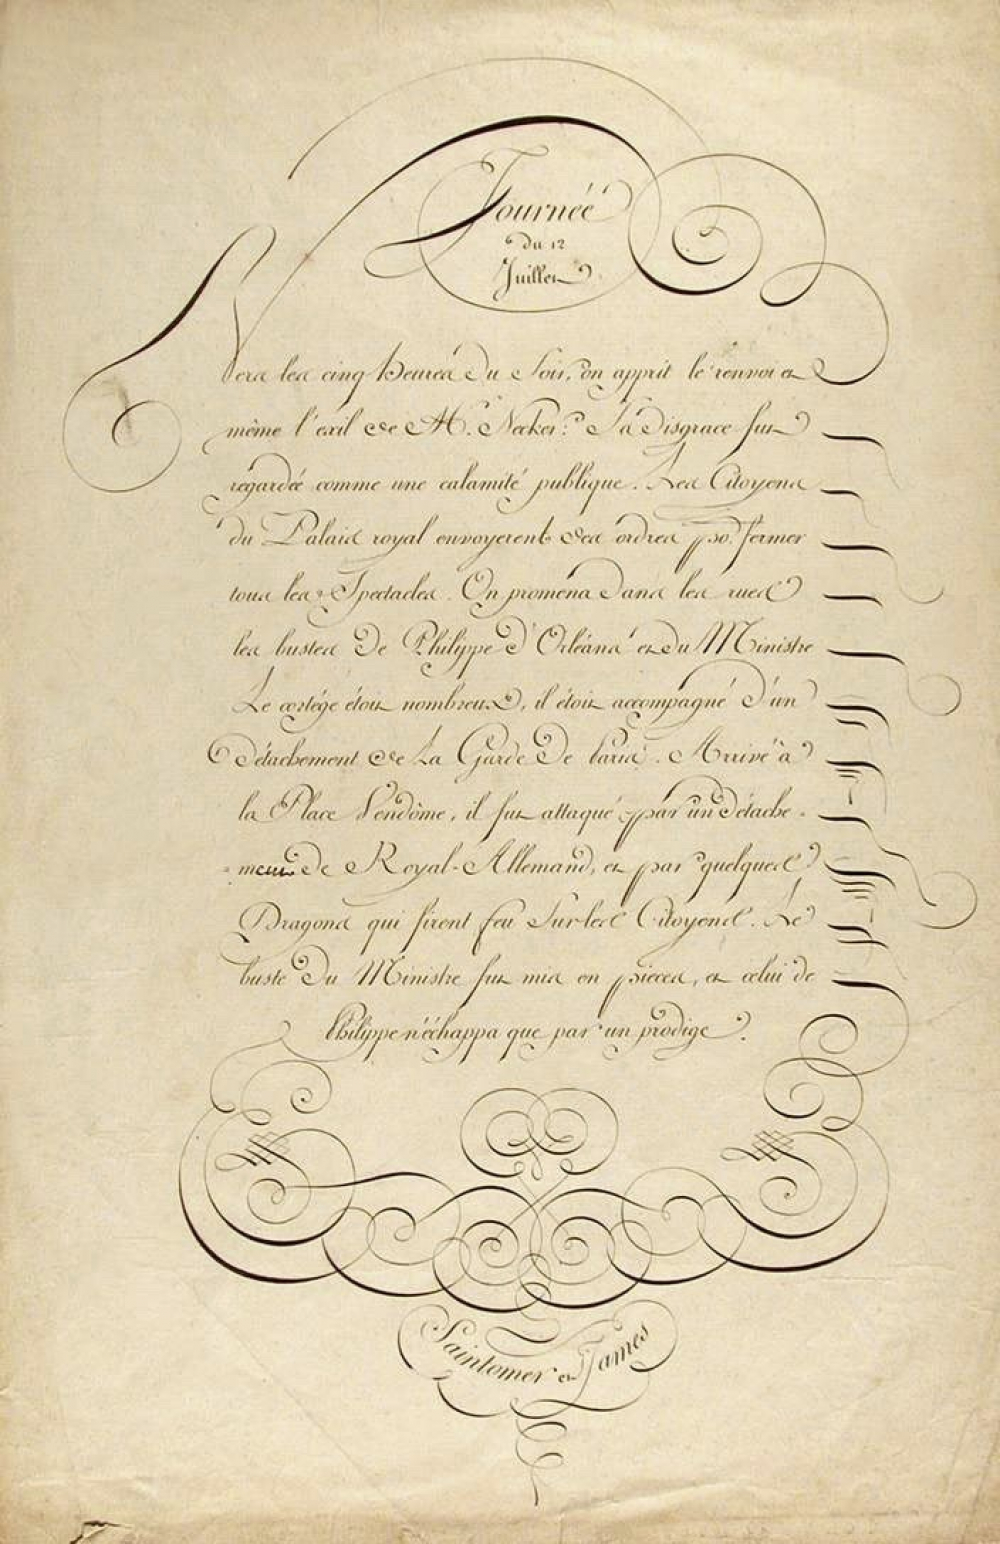 Journée
du 12
Juillet
Vers les cinq heures du Soir, on apprit le renvoi et
même l'exil de M. Necker: Sa disgrace fut
regardée comme une calamité publique. Les Citoyens
du Palais royal envoyerent des ordres po. fermer
tous les Spectacles. On promena dans les rues
les bustes de Philippe d'Orléans et du Ministre
Le cortége étoit nombreux, il étoit accompagné d'un
détachement de La Garde de Paris. Arrivé à
la Place Vendôme, il fut attaqué par un détache=
=ment de Royal-Allemand, et par quelques
Dragons qui firent feu Sur les Citoyens. Le
buste du Ministre fut mis en pieces, et celui de
Philippe n'échappa que par un prodige.
Saintomer et James